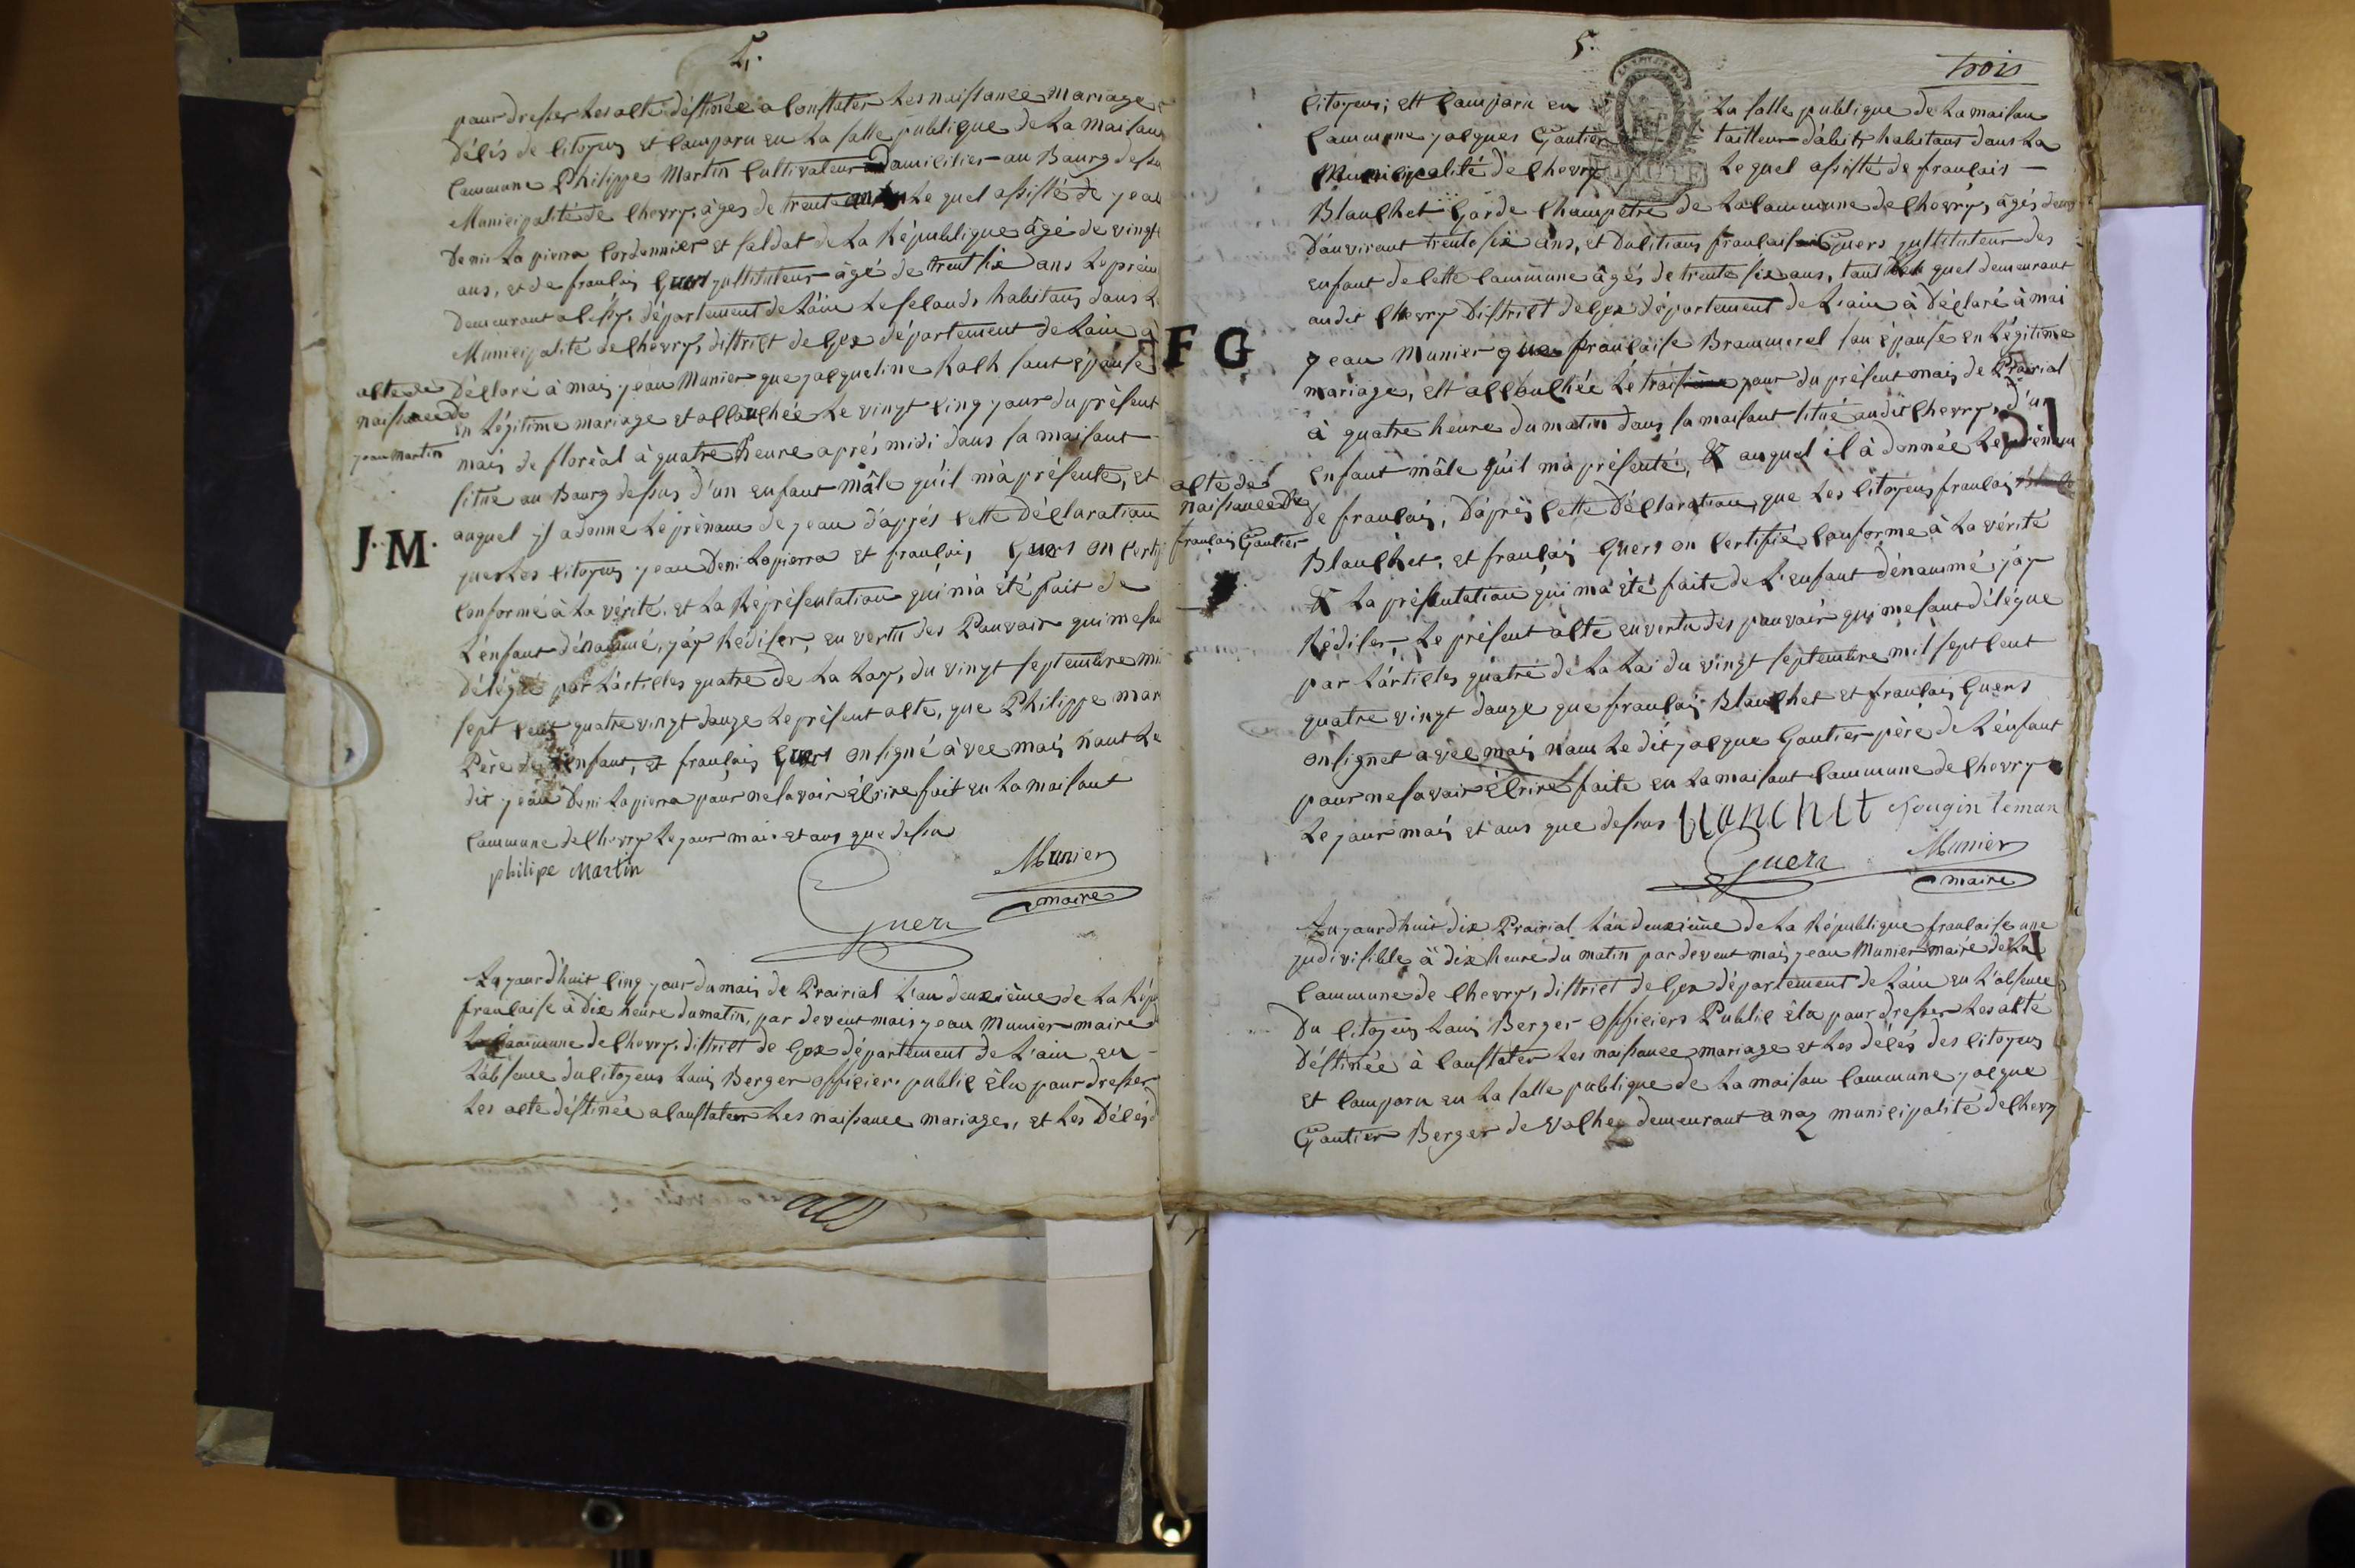 4.
pour dresser les acte déstinée a constater les naissance mariage
Décés de Citoyens et Comparu en La salle publique de La maison
Commune Philippe Martin Cultivateur Domicilier au Bourg dessu
Municipalité de Chevry, âges de trente Le quel assisté de jean
Deni Lapierra Cordonnier et saldat de La République âgé de vingt
ans, et de françois Guers justituteur âgé de trent six ans Le prém
Demeurant a Cessy, département de L'ain Le second habitans dans L
Municipalité de Chevry, district de Gex département de Lain a
Déclaré à moi jean Munier que jacqueline Roch sont épouse
en Légitime mariage et accouchée Le vingt cinq jour du présent
mois de floréal à quatre heure aprés midi dans sa maisont
situe au Bourg dessus d'un enfant mâle qu'il m'a présente, et
auquel jl a donne Le prénom de jean d'aprés cette Déclaration
que Les Citoyens jean Deni Lapierra et françois Guers on certif
conformé à La vérité. et La Réprésentation qui m'a été fait de
L'énfant dénommé, j'ay Rédiser, en vertu des Pouvoir qui me son
Délégué par L'articles quatre de La Loy, du vingt septembre mi
sept cent quatre vingt douze Le présent acte, que Philippe mar
Père de L'énfant, et françois Guers on signé àvec moi nont Le
dit jean Deni Lapierra pour ne savoir écrire fait en La maisont
Commune de Chevry Le jour mois et ans que dessu
philipe Martin
Munier
maire
Guers
acte de
naissance de
jean Martin
J. M.
Aujourd'huit Cinq jour du mois de Prairial L'an deuxième de La Répu
françaisse à Dix heure du matin, par devent moi jean Munier maire d
La Commune de Chevry, district de Gex département de L'ain, en
L'absence du Citoyens Louis Berger officier public élu pour dresser
Les acte déstinée a constater Les naissance mariages, et Les Décés d
5.
trois
Citoyens; est Comparu en La salle publique de La maison
Commune jacques Gautier tailleur d'abit, habitans dans La
Municipalité de Chevry Le quel assisté de françois
Blanchet Garde Champetre de La Commune de Chevry, âgés denv
D'anviront trente six ans, et du Citions françois Guers justituteur des
enfant de cette Commune âgés de trente six ans, tout quel demeurant
audit Chevry District de Gex département de L'ain à Déclaré à moi
jean Munier que françoise Brammerel son épouse en Légitime
mariage, est accouchée Le trois jour du présent mois de Prairial
à quatre heure du matin dans sa maisont situé audit Chevry, d'un
enfant mâle qu'il m'a présenté, & auquel il à donnée Le prénom
de françois, D'aprés cette Déclaration, que Les Citoyens françois
Blanchet, et françois Guers on certifié conforme à La vérité
& La présentation qui m'a été faite de L'enfant dénommé, j'ay
Rédiser, Le présent acte en vertu des pouvoir qui me sont délégue
par L'articles quatre de La Loi du vingt septembre mil sept cent
quatre vingt douze que françois Blanchet et françois Guers
on signet avec moi nom Le dit jacque Gautier père de L'énfant
pour ne savoir écrire faite en La maisont Commune de Chevry
Le jour mois et ans que dessus blanchet Nougin temon
Guers
Munier
maire
F G
acte de
naissance De
françois Gautier
Aujourdhuit dix Prairial L'an deuxième de La République françaisse une
jndivisible à dix heure du matin par devent moi jean Munier maire de La
Commune de Chevry, district de Gex département de L'ain en L'absence
Du Citoyens Louis Berger officiers Public élu pour dresser Les acte
Déstinée à constater Les naissance mariage et Les décés des Citoyens
et Comparu en La salle publique de La maison Commune jacque
Gautier Berger de vache demeurant a naz municipalité de Chevry